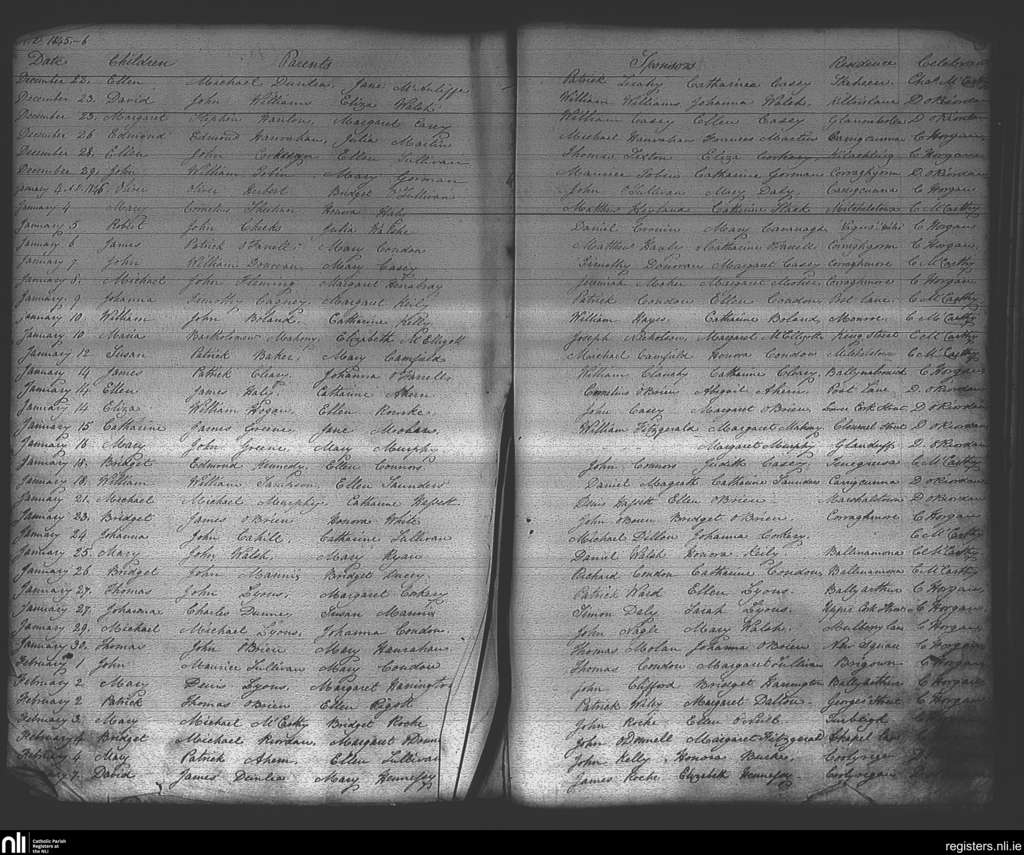 A.D. 1845-6
Date Children Parents Sponsors Residence Celebrant
December 22. Ellen Michael Dunlea Jane McAuliffe Patrick Catharine Casey Skeheen Chas. McCarthy
December 23. David John Williams Eliza Walsh William Williams Johanna Walsh D. O'Riordan
December 25. Margaret Stephen Hanlon Margaret Casey William Casey Ellen Casey D. O'Riordan
December 26 Edmond Edmond Hanrahan Julia Martin Michael Hanrahan Frances Martin Carrigcunna C. Horgan
December 28. Ellen John Corkeran Ellen Sullivan Thomas Sexton Eliza C. Horgan
December 29. John William Tobin Mary Gorman Maurice Tobin Catharine Gorman Corraghgorm D. O'Riordan
January 4. A.D. 1846 Oliver Oliver Herbert Bridget O'Sullivan John O'Sullivan Mary Daly Carrigcunna C. Horgan
January 4 Mary Cornelius Sheehan Honora Mathew Catherine Mitchelstown C. McCarthy
January 5 Robert John Cheeks Julia Daniel Cronin Mary Cavanagh C. Horgan
January 6 James Patrick O'Farrell Mary Condon Matthew Catharine Corraghgorm C. Horgan
January 7. John William Donovan Mary Casey Timothy Donovan Margaret Casey Corraghmore C. McCarthy
January 8. Michael John Fleming Margaret Jeremiah Maher Margaret Corraghmore C. Horgan
January 9 Johanna Timothy Cagney Margaret Reily Patrick Condon Ellen Condon Post Lane C. McCarthy
January 10. William John Boland Catharine Kelly William Hayes Catharine Boland C. McCarthy
January 10 Maria Bartholomew Mahony Elizabeth McElligott Joseph Nicholson Margaret McElligott King Street C. McCarthy
January 12 Susan Patrick Baker Mary Camfield Michael Camfield Honora Condon Mitchelstown C. McCarthy
January 14 James Patrick Cleary Johanna O'Farrell William Catharine Cleary C. Horgan
January 14. Ellen James Haly Catharine Ahern Cornelius O'Brien Abigail Ahern Post Lane D. O'Riordan
January 14 Eliza William Hogan Ellen Rourke John Casey Margaret O'Brien Lower Cork Street D. O'Riordan
January 15 Catharine James Greene Jane Meehan William Fitzgerald Margaret Mahony Clonmel Street D. O'Riordan
January 16 Mary John Greene Mary Murphy Margaret Murphy Glanduff D. O'Riordan
January 18. Bridget Edmond Kennedy Ellen Connors John Connors Judith Casey C. McCarthy
January 18. William William Ellen Saunders Daniel Magrath Catharine Saunders Carrigcunna D. O'Riordan
January 21. Michael Michael Murphy Catharine Denis Ellen O'Brien Marshalstown D. O'Riordan
January 23. Bridget James O'Brien Honora White John O'Brien Bridget O'Brien Corraghmore C. Horgan
January 24 Johanna John Cahill Catharine Sullivan Michael Dillon Johanna Corkery C. McCarthy
January 25. Mary John Walsh Mary Ryan Daniel Walsh Honora Reily Ballinamona C. McCarthy
January 26 Bridget John Mannix Bridget Richard Condon Catharine Condon Ballinamona C. McCarthy
January 27. Thomas John Lyons Margaret Corkery Patrick Ward Ellen Lyons Ballyarthur C. Horgan
January 27. Johanna Charles Dunney Susan Mannix Simon Daly Sarah Lyons Upper Cork Street C. Horgan
January 29. Michael Michael Lyons Johanna Condon John Nagle Mary Walsh Mulberry Lane C. Horgan
January 30. Thomas John O'Brien Mary Hanrahan Thomas Johanna O'Brien New Square C. Horgan
February 1 John Maurice Sullivan Mary Condon Thomas Condon Margaret Sullivan Brigown C. Horgan
February 2 Mary Denis Lyons Margaret Harrington John Clifford Bridget Harrington Ballyarthur C. Horgan
February 2 Patrick Thomas O'Brien Ellen Pigott Patrick Wiley Margaret Dalton Georges Street C. Horgan
February 3. Mary Michael McCarthy Bridget Roche John Roche Ellen O'Neill Turbeigh
February 4. Bridget Michael Riordan Margaret John O'Donnell Margaret Fitzgerald Chapel Lane
February 4 Mary Patrick Ahern Ellen Sullivan John Kelly Honora Burke
February 7. David James Dunlea Mary Hennessy James Roche Elizabeth Hennessy
nli Catholic Parish Registers at the NLI
registers.nli.ie